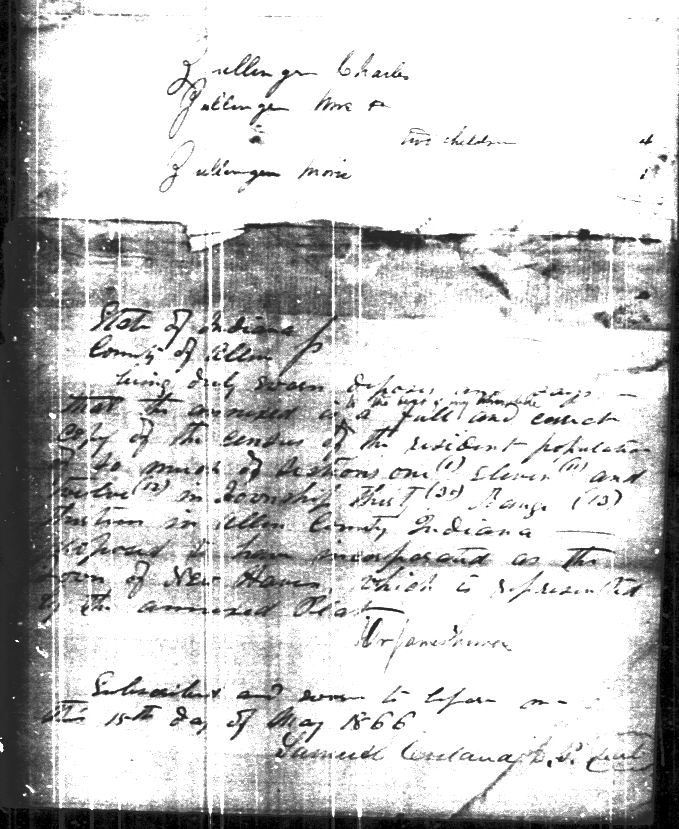 Zullinger Charles
Zullinger Mrs &
two children 4
Zullinger Moxie 1
State of Indiana
County of Allen
being duly sworn deposes and says
to the best of my knowledge
that the annexed is a full and correct
copy of the census of the resident population
of so much of sections one (1) eleven (11) and
twelve (12) in Township thirty (30) Range (13)
thirteen in Allen County Indiana
proposed to have incorporated as the
town of New Haven, which is represented
by the annexed Plat
Subscribed and sworn to before me
this 15th day of May 1866
Samuel